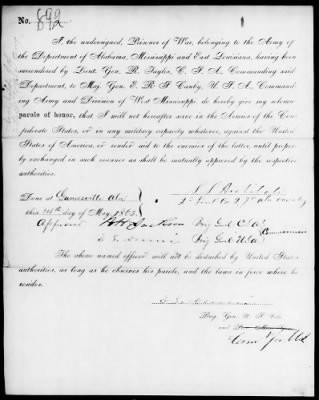 No.
I the undersigned, Prisoner of War, belonging to the Army of
the Department of Alabama, Mississippi and East Louisiana, having been
surrendered by Lieut. Gen. R. Taylor, C. S. A., Commanding said
Department, to Maj. Gen. E. R. S. Canby, U. S. A., Command-
ing Army and Division of West Mississippi, do hereby give my solemn
parole of honor, that I will not hereafter serve in the Armies of the Con-
federate States, or in any military capacity whatever, against the United
States of America, or render aid to the enemies of the latter, until proper-
ly exchanged in such manner as shall be mutually approved by the respective
authorities.
Done at Gainesville Ala
this 14th day of May 1865.
Approved W H Jackson Brig Genl C.S.A.
Brig Genl U.S.A. Commissioners
The above named officer will not be disturbed by United States
authorities, as long as he observes his parole, and the laws in force where he
resides.
Brig. Gen. U. S. Vols
and
Com'r for U.S.